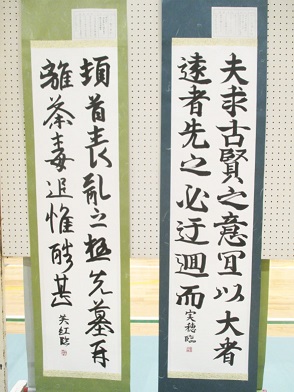 夫求古賢之意宜以大者
遠者先之必迂迴而
実穂臨
頓首喪乱之極先墓再
離荼毒追惟酷甚
美紅臨